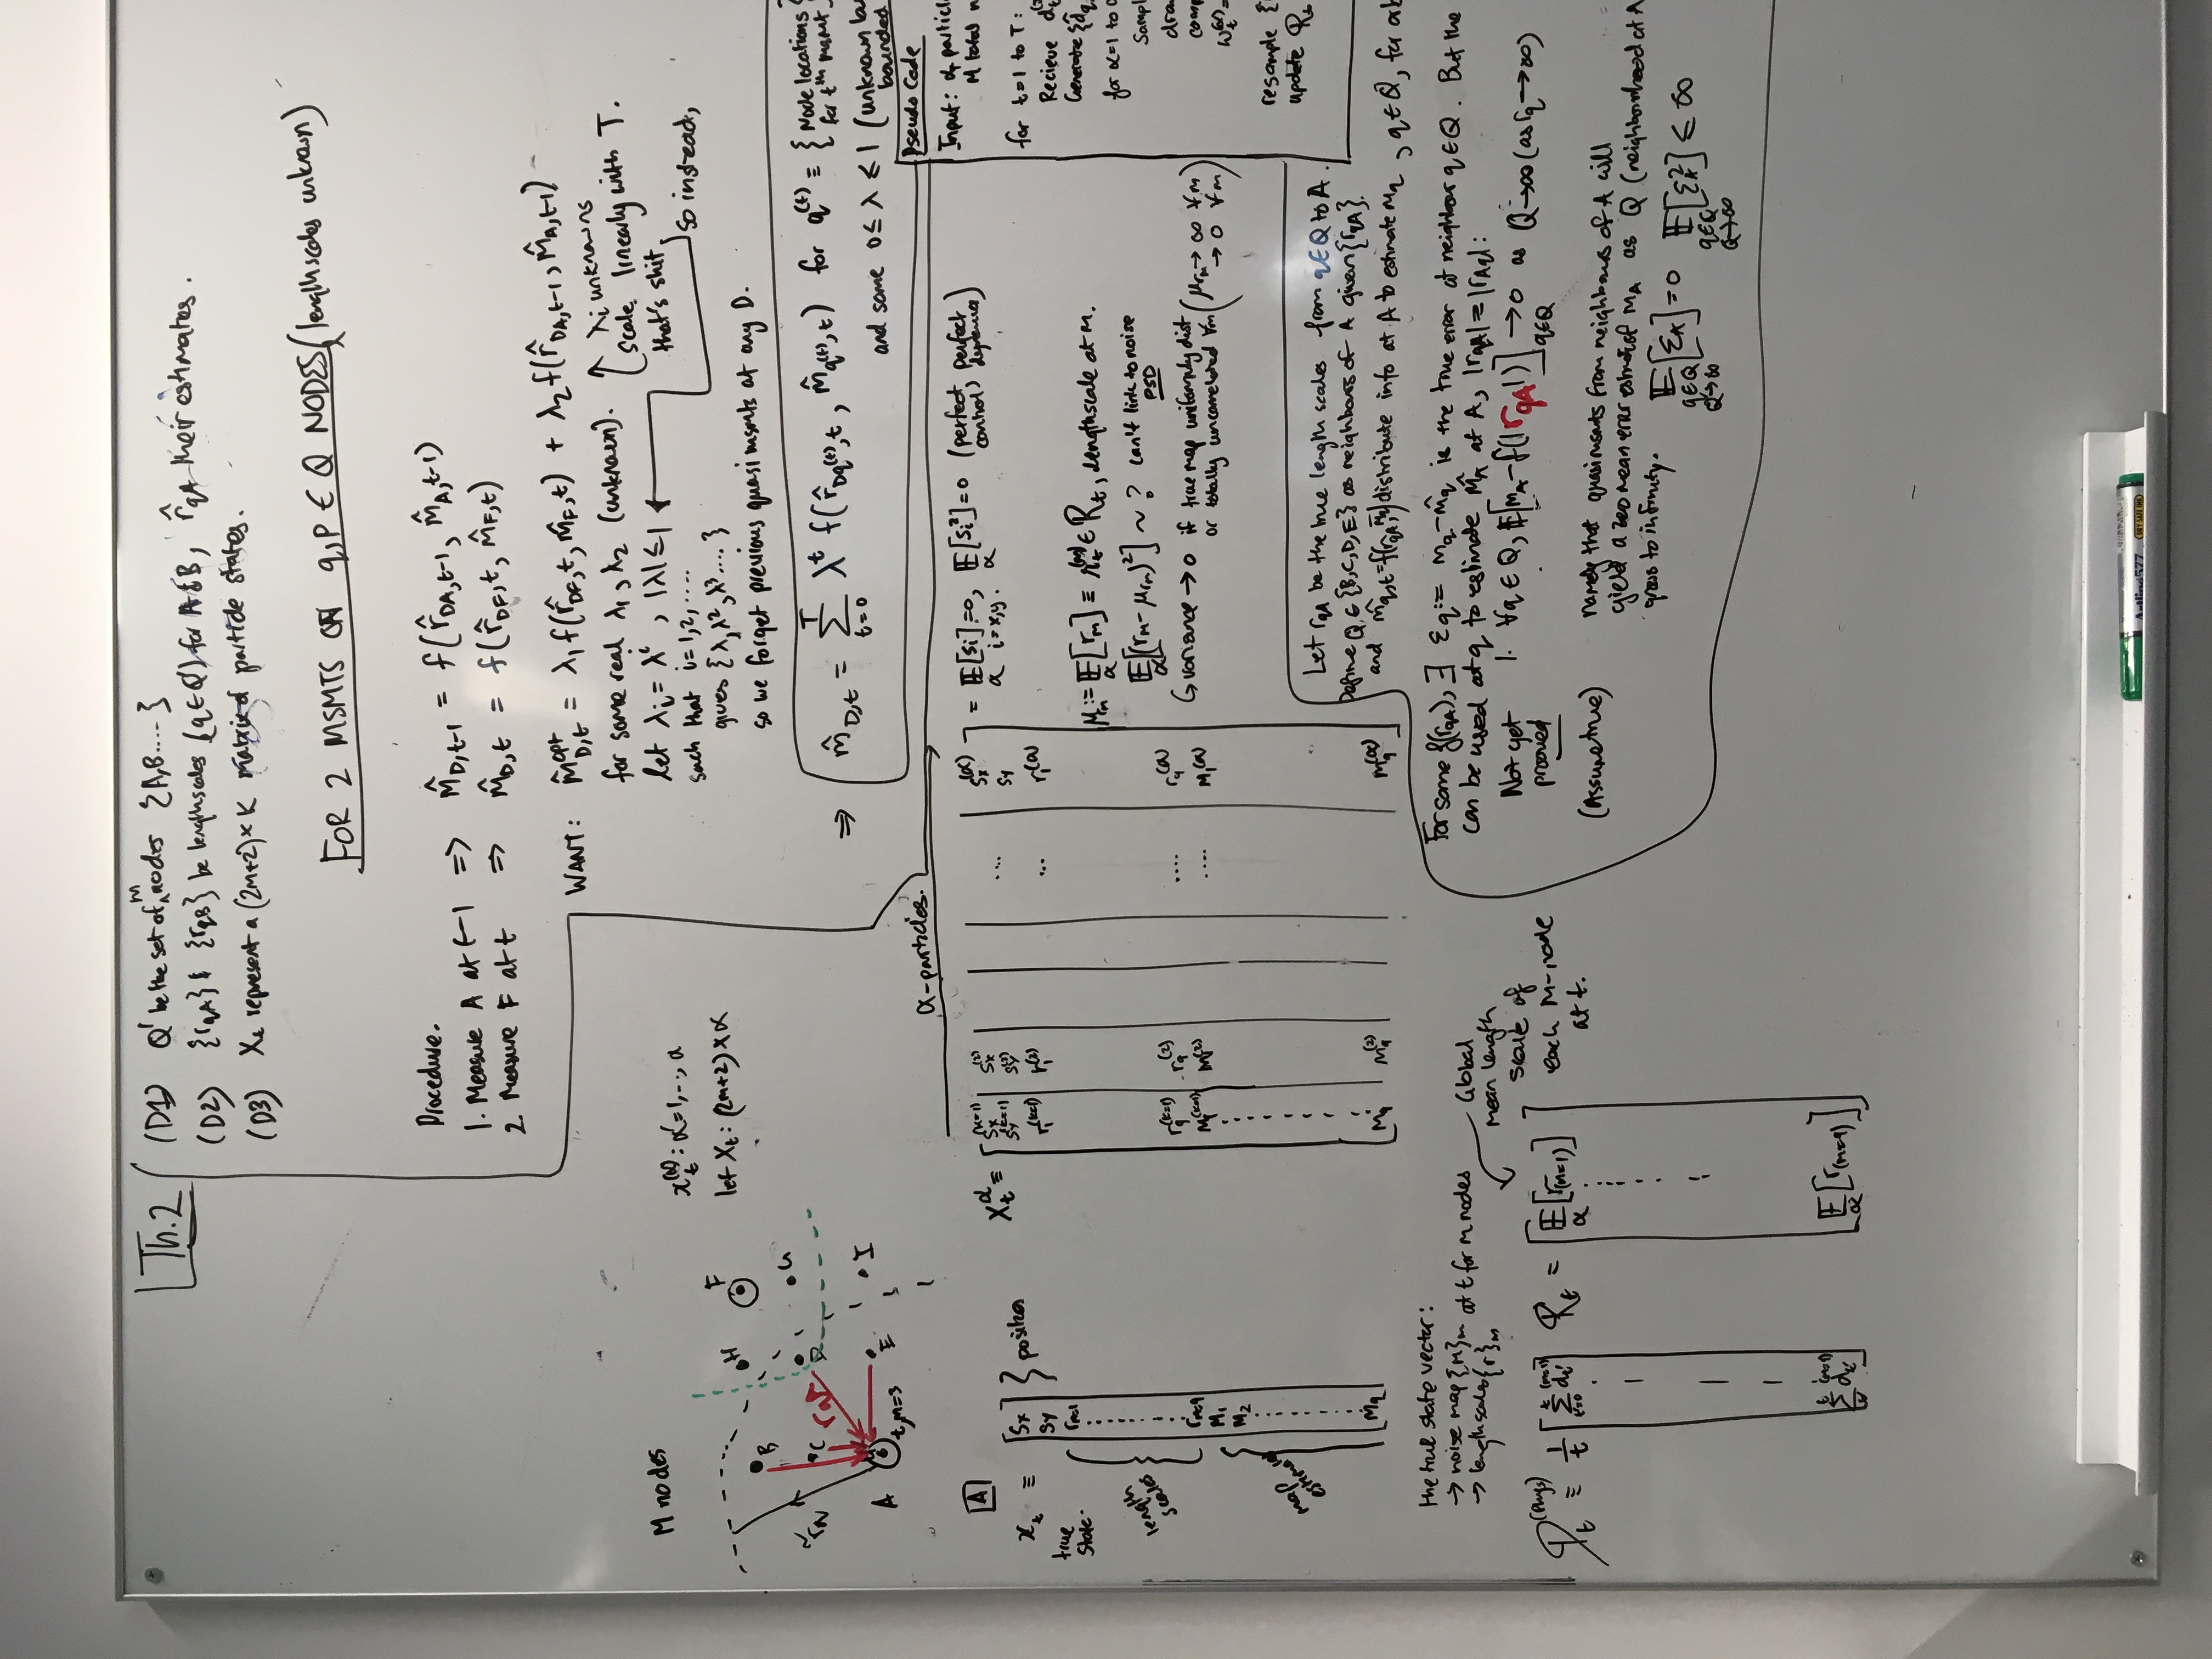 Th.2
(D1) Q' be the set of m nodes {A,B.....}
(D2) {r_qA} & {r_qB} be lengthscales (q ∈ Q') for A & B, r̂_qA their estimates.
(D3) X_t represent a (2m+2) × K matrix of particle states.
FOR 2 MSMTS ON q,P ∈ Q NODES (lengthscales unknown)
Procedure.
1. Measure A at t-1 => m̂_D,t-1 = f(r̂_DA,t-1, m̂_A,t-1)
2. Measure F at t => m̂_D,t = f(r̂_DF,t, m̂_F,t)
WANT: m̂^opt_D,t = λ₁ f(r̂_DF,t, m̂_F,t) + λ₂ f(r̂_DA,t-1, m̂_A,t-1)
for some real λ₁, λ₂ (unknown).
λi unknowns
scale linearly with T.
that's shit,
so instead,
let λ_i = λ^i, |λ| ≤ 1
such that i=1,2,....
gives {λ, λ², λ³....}
so we forget previous quasi msmts at any D.
=> m̂_D,t = Σ_{t=0}^{T} λ^t f(r̂_Dq^(t),t, m̂_q^(t),t) for q^(t) ≡ { Node locations
for t^th msmt }
and some 0 ≤ λ ≤ 1 (unknown
bounded
M nodes
x_t^(α) : α=1,..,α
let X_t : (2m+2) × α
H
F
B
C
G
D
r_qA
r̃_A
A
t,m=3
E
I
α-particles.
A
x_t ≡
true
state.
Sx
Sy
} position
r_m=1
length
scales
r_m=q
M_1
M_2
map
estimates
M_q
X_t^α ≡
Sx^(k=1) Sx^(2) .... Sx^(α)
Sy^(k=1) Sy^(2) Sy
r_1^(k=1) r_1^(2) ... r_1^(α)
r_q^(k=1) r_q^(2) .... r_q^(α)
M_1^(k=1) M_1^(2) .... M_1^(α)
M_q M_q^(2) M_q^(α)
= 𝔼_α[s_i]=0, 𝔼_α[s_i²]=0 (perfect control, perfect dynamics)
i=x,y.
μ_m := 𝔼_α[r_m] ≡ r_t^(m) ∈ R_t, lengthscale at m.
𝔼_α[(r_m - μ_rm)²] ~ ? can't link to noise
PSD
↳ variance → 0 if true map uniformly dist
or totally uncorrelated ∀m (μ_rm → ∞ ∀m
→ 0 ∀m)
Pseudo Code
Input: α
M total
for t=1 to T:
Recieve
Generate
for α=1 to
resample {
update R_t
Let r_qA be the true length scales from q∈Q to A.
Define Q ∈ {B,C,D,E} as neighbours of A given {r_qA}.
and m̂_q,t = distribute info at A to estimate m_q, q ∈ Q, for
For some f(r_qA), ∃ ε_q := m_q - m̂_q is the true error at neighbour q ∈ Q. But the
can be used at q to estimate m̂_A at A, |r_qA| = |r_Aq| :
Not yet
proved
1. ∀q ∈ Q, 𝔼[m_A - f(|r_qA|)]_{q∈Q} → 0 as Q → ∞ (as r_q → ∞)
(Assume true)
namely that quasimsmts from neighbours of A will
yield a zero mean error estimate of m_A as Q (neighbourhood at A
grows to infinity.
𝔼_{q∈Q, Q→∞}[ε_A] = 0 𝔼_{q∈Q, Q→∞}[ε_A²] ≤ ∞
the true state vector:
→ noise map {M}_m
→ lengthscales {r}_m
at t for m nodes
Global
mean length
scale of
each M-node
at t.
D_t^(Phys) ≡ 1/t [ Σ_{t'=0}^{t} d_t'^(m=1)
Σ d_t'
R_t = [ 𝔼_α[r_(m=1)]
𝔼_α[r_(m=q)] ]
Artline 577
DRY SAFE INK